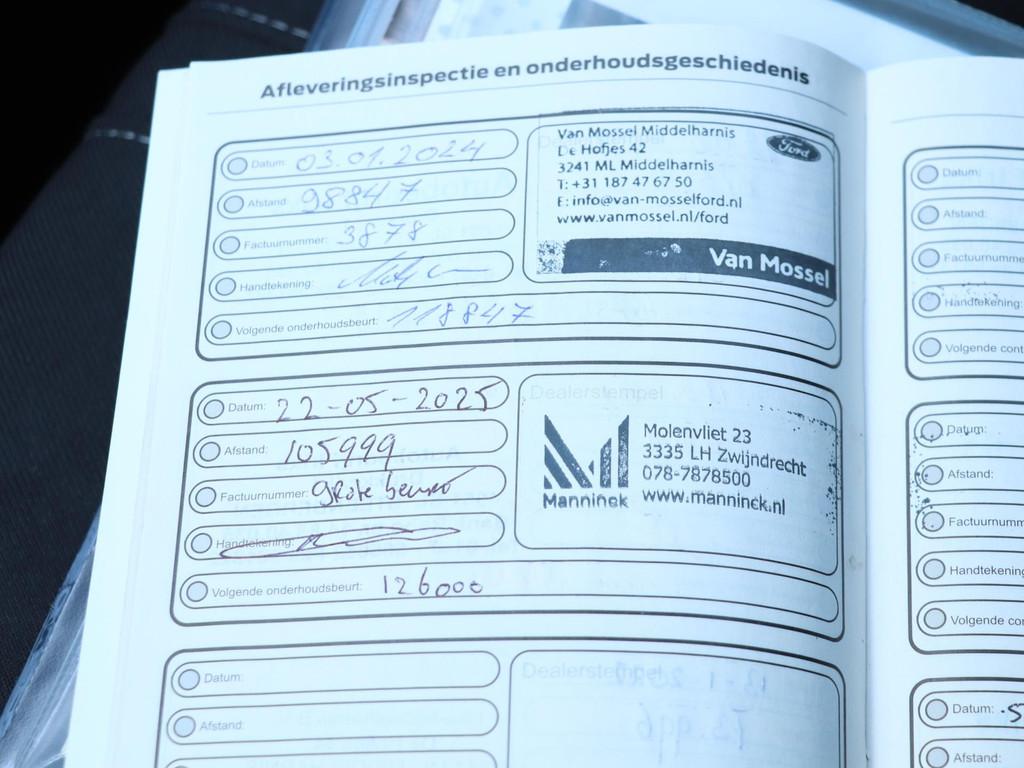 Afleveringsinspectie en onderhoudsgeschiedenis
Datum: 03.01.2024
Afstand: 98847
Factuurnummer: 3878
Handtekening:
Volgende onderhoudsbeurt: 118847
Van Mossel Middelharnis
De Hofjes 42
3241 ML Middelharnis
T: +31 187 47 67 50
E: info@van-mosselford.nl
www.vanmossel.nl/ford
Ford
Van Mossel
Datum: 22-05-2025
Afstand: 105999
Factuurnummer: grote beurt
Handtekening:
Volgende onderhoudsbeurt: 126000
Dealerstempel
Manninck
Molenvliet 23
3335 LH Zwijndrecht
078-7878500
www.manninck.nl
Datum:
Afstand:
Dealerstempel
Datum:
Afstand:
Factuurnumme
Handtekening:
Volgende cont
Datum:
Afstand:
Factuurnumm
Handtekening
Volgende con
Datum:
Afstand: